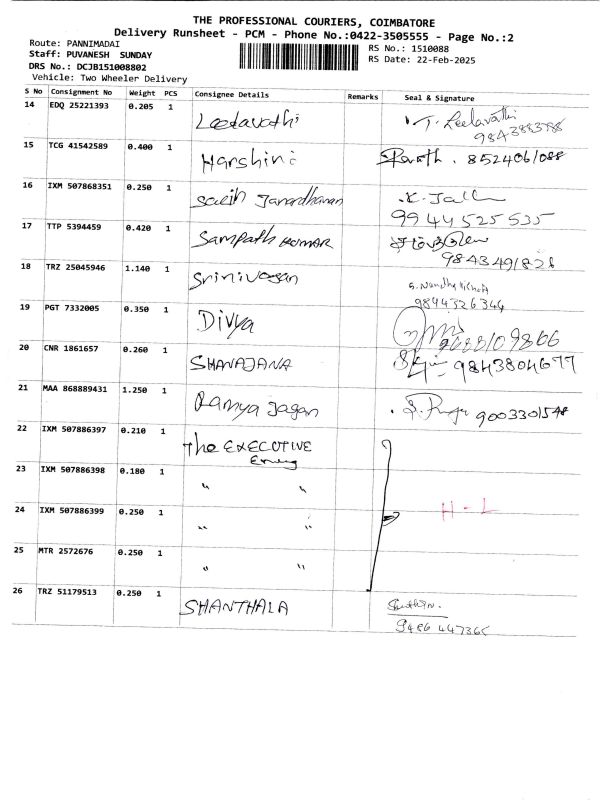 THE PROFESSIONAL COURIERS, COIMBATORE
Delivery Runsheet - PCM - Phone No.:0422-3505555 - Page No.:2
Route: PANNIMADAI
RS No.: 1510088
Staff: PUVANESH SUNDAY
RS Date: 22-Feb-2025
DRS No.: DCJB151008802
Vehicle: Two Wheeler Delivery
S No Consignment No Weight PCS Consignee Details Remarks Seal & Signature
14 EDQ 25221393 0.205 1 Leelavathi T. Leelavathi
15 TCG 41542589 0.400 1 Harshini 8524061088
16 IXM 507868351 0.250 1 Janardhanan
9944525535
17 TTP 5394459 0.420 1 Sampath KUMAR
9843491828
18 TRZ 25045946 1.140 1 Srinivasan
9894326344
19 PGT 7332005 0.350 1 Divya
20 CNR 1861657 0.260 1 SHANAJANA 9843804677
21 MAA 868889431 1.250 1 Ramya Jagan 9003301548
22 IXM 507886397 0.210 1 The EXECUTIVE
23 IXM 507886398 0.180 1 " "
24 IXM 507886399 0.250 1 " " H-L
25 MTR 2572676 0.250 1 " "
26 TRZ 51179513 0.250 1 SHANTHALA
9486 447365